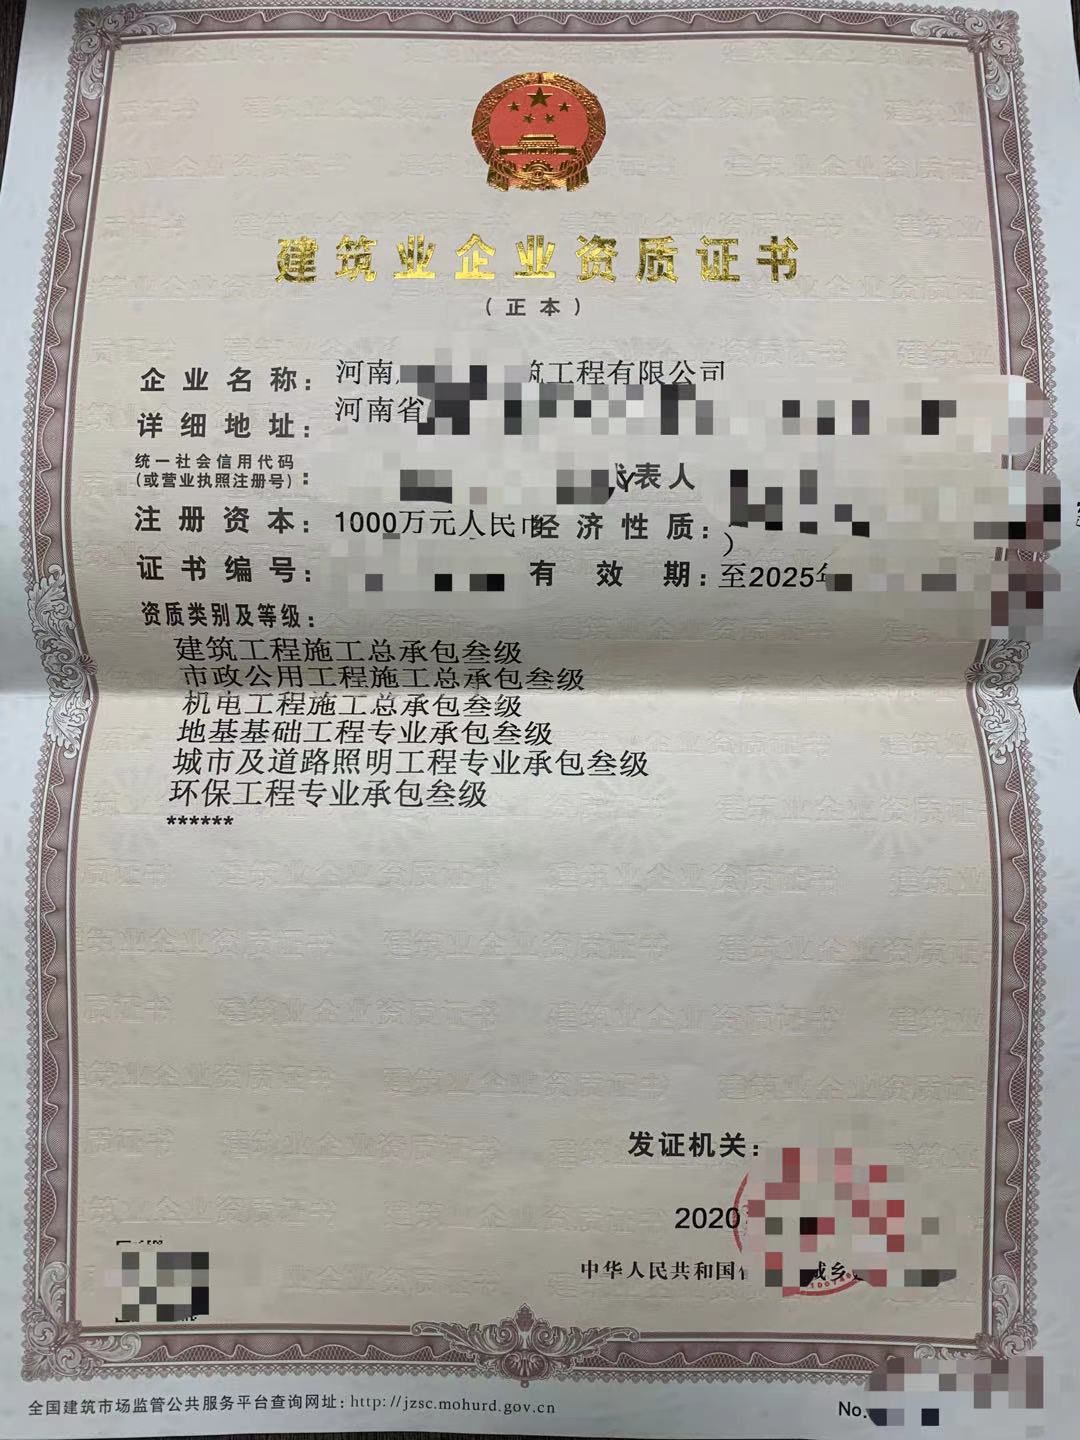 建筑业企业资质证书
(正本)
企业名称: 河南 筑工程有限公司
详细地址: 河南省
统一社会信用代码
(或营业执照注册号): 代表人
注册资本: 1000万元人民币 经济性质: )
证书编号: 有效期: 至2025年
资质类别及等级:
建筑工程施工总承包叁级
市政公用工程施工总承包叁级
机电工程施工总承包叁级
地基基础工程专业承包叁级
城市及道路照明工程专业承包叁级
环保工程专业承包叁级
******
发证机关:
2020
中华人民共和国 城乡
全国建筑市场监管公共服务平台查询网址: http://jzsc.mohurd.gov.cn
No.